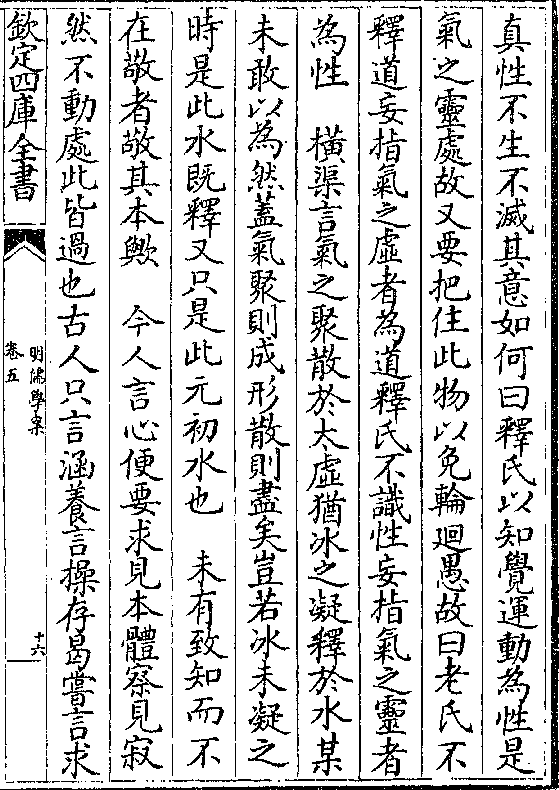 真性不生不滅其意如何曰釋氏以知覺運動為性是
氣之靈處故又要把住此物以免輪迴愚故曰老氏不
釋道妄指氣之虛者為道釋氏不識性妄指氣之靈者
為性　橫渠言氣之聚散於太虛猶冰之凝釋於水某
未敢以為然蓋氣聚則成形散則盡矣豈若冰未凝之
時是此水既釋又只是此元初水也　未有致知而不
在敬者敬其本歟　今人言心便要求見本體察見寂
然不動處此皆過也古人只言涵養言操存曷嘗言求
欽定四庫全書
明儒學案
卷五
十六